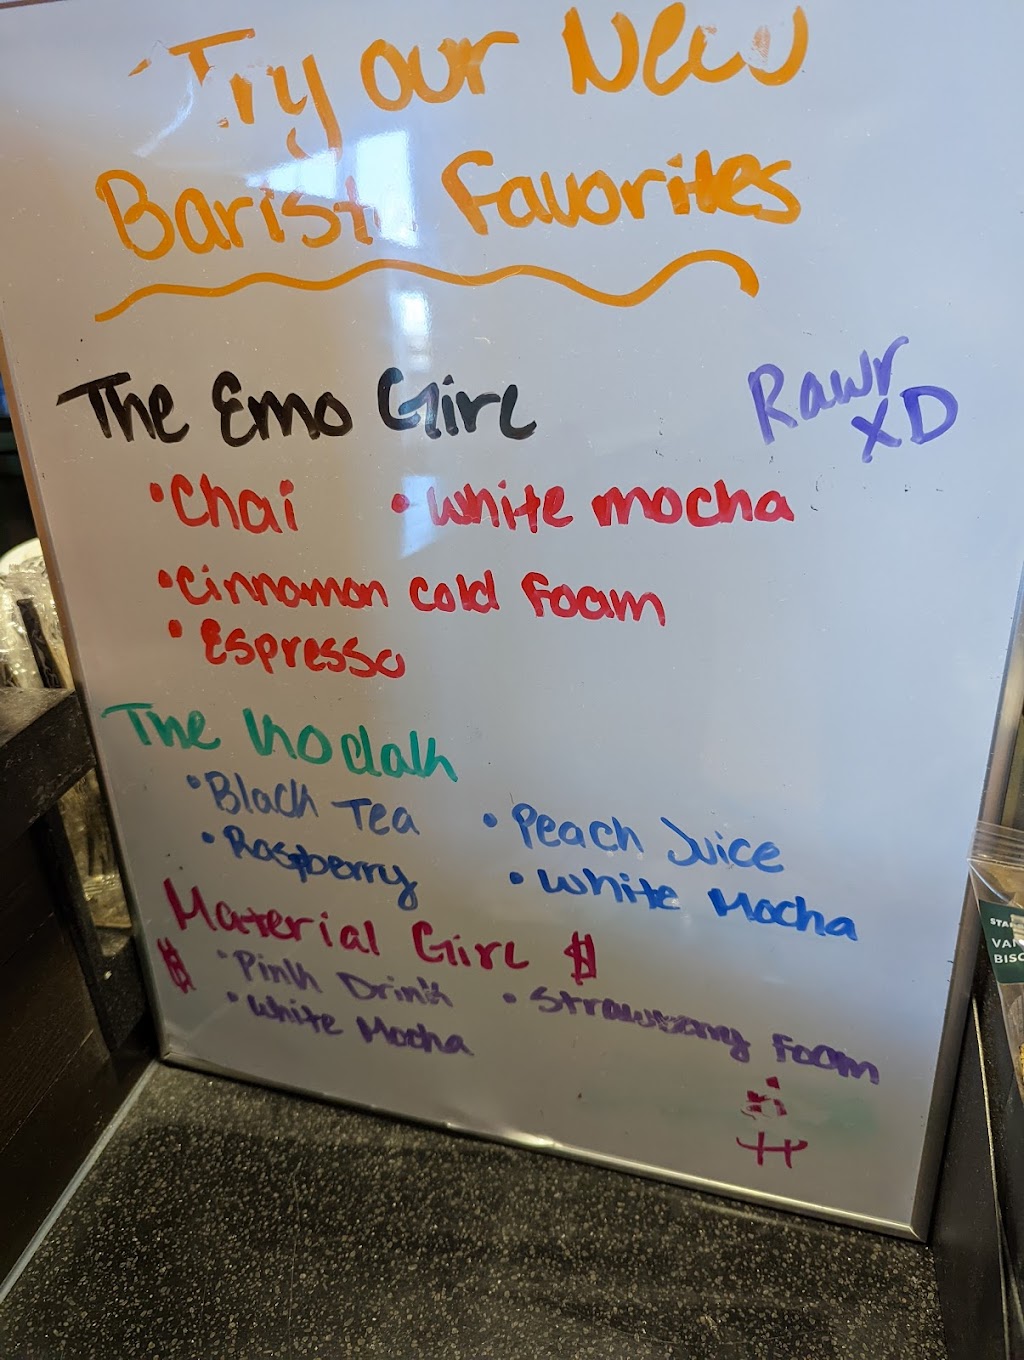 Try our New
Barista Favorites
The Emo Girl
Rawr
XD
• Chai • White mocha
• Cinnamon cold foam
• Espresso
The Kodak
• Black Tea • Peach Juice
• Raspberry • White Mocha
Material Girl $
$ • Pink Drink • Strawberry Foam
• White Mocha